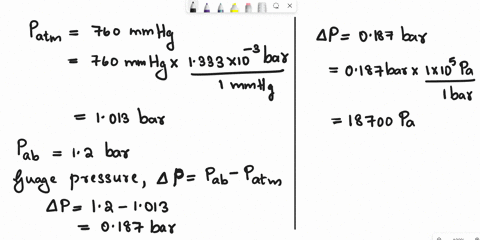 Patm = 760 mmHg
= 760 mmHg × 1.333×10⁻³ bar / 1 mmHg
= 1.013 bar
Pab = 1.2 bar
Guage pressure, ΔP = Pab − Patm
ΔP = 1.2 − 1.013
= 0.187 bar
ΔP = 0.187 bar
= 0.187 bar × 1×10⁵ Pa / 1 bar
= 18700 Pa